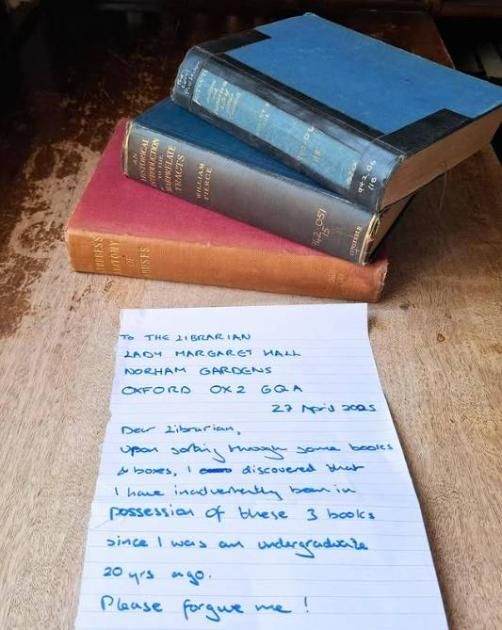 AN
HISTORICAL
INTRODUCTION
TO THE
MARPRELATE
TRACTS
WILLIAM
PIERCE
942.051
15
942.06
118
To THE LIBRARIAN
LADY MARGARET HALL
NORHAM GARDENS
OXFORD OX2 6QA
27 April 2025
Dear Librarian,
Upon sorting through some books
& boxes, I discovered that
I have inadvertently been in
possession of these 3 books
since I was an undergraduate
20 yrs ago.
Please forgive me!